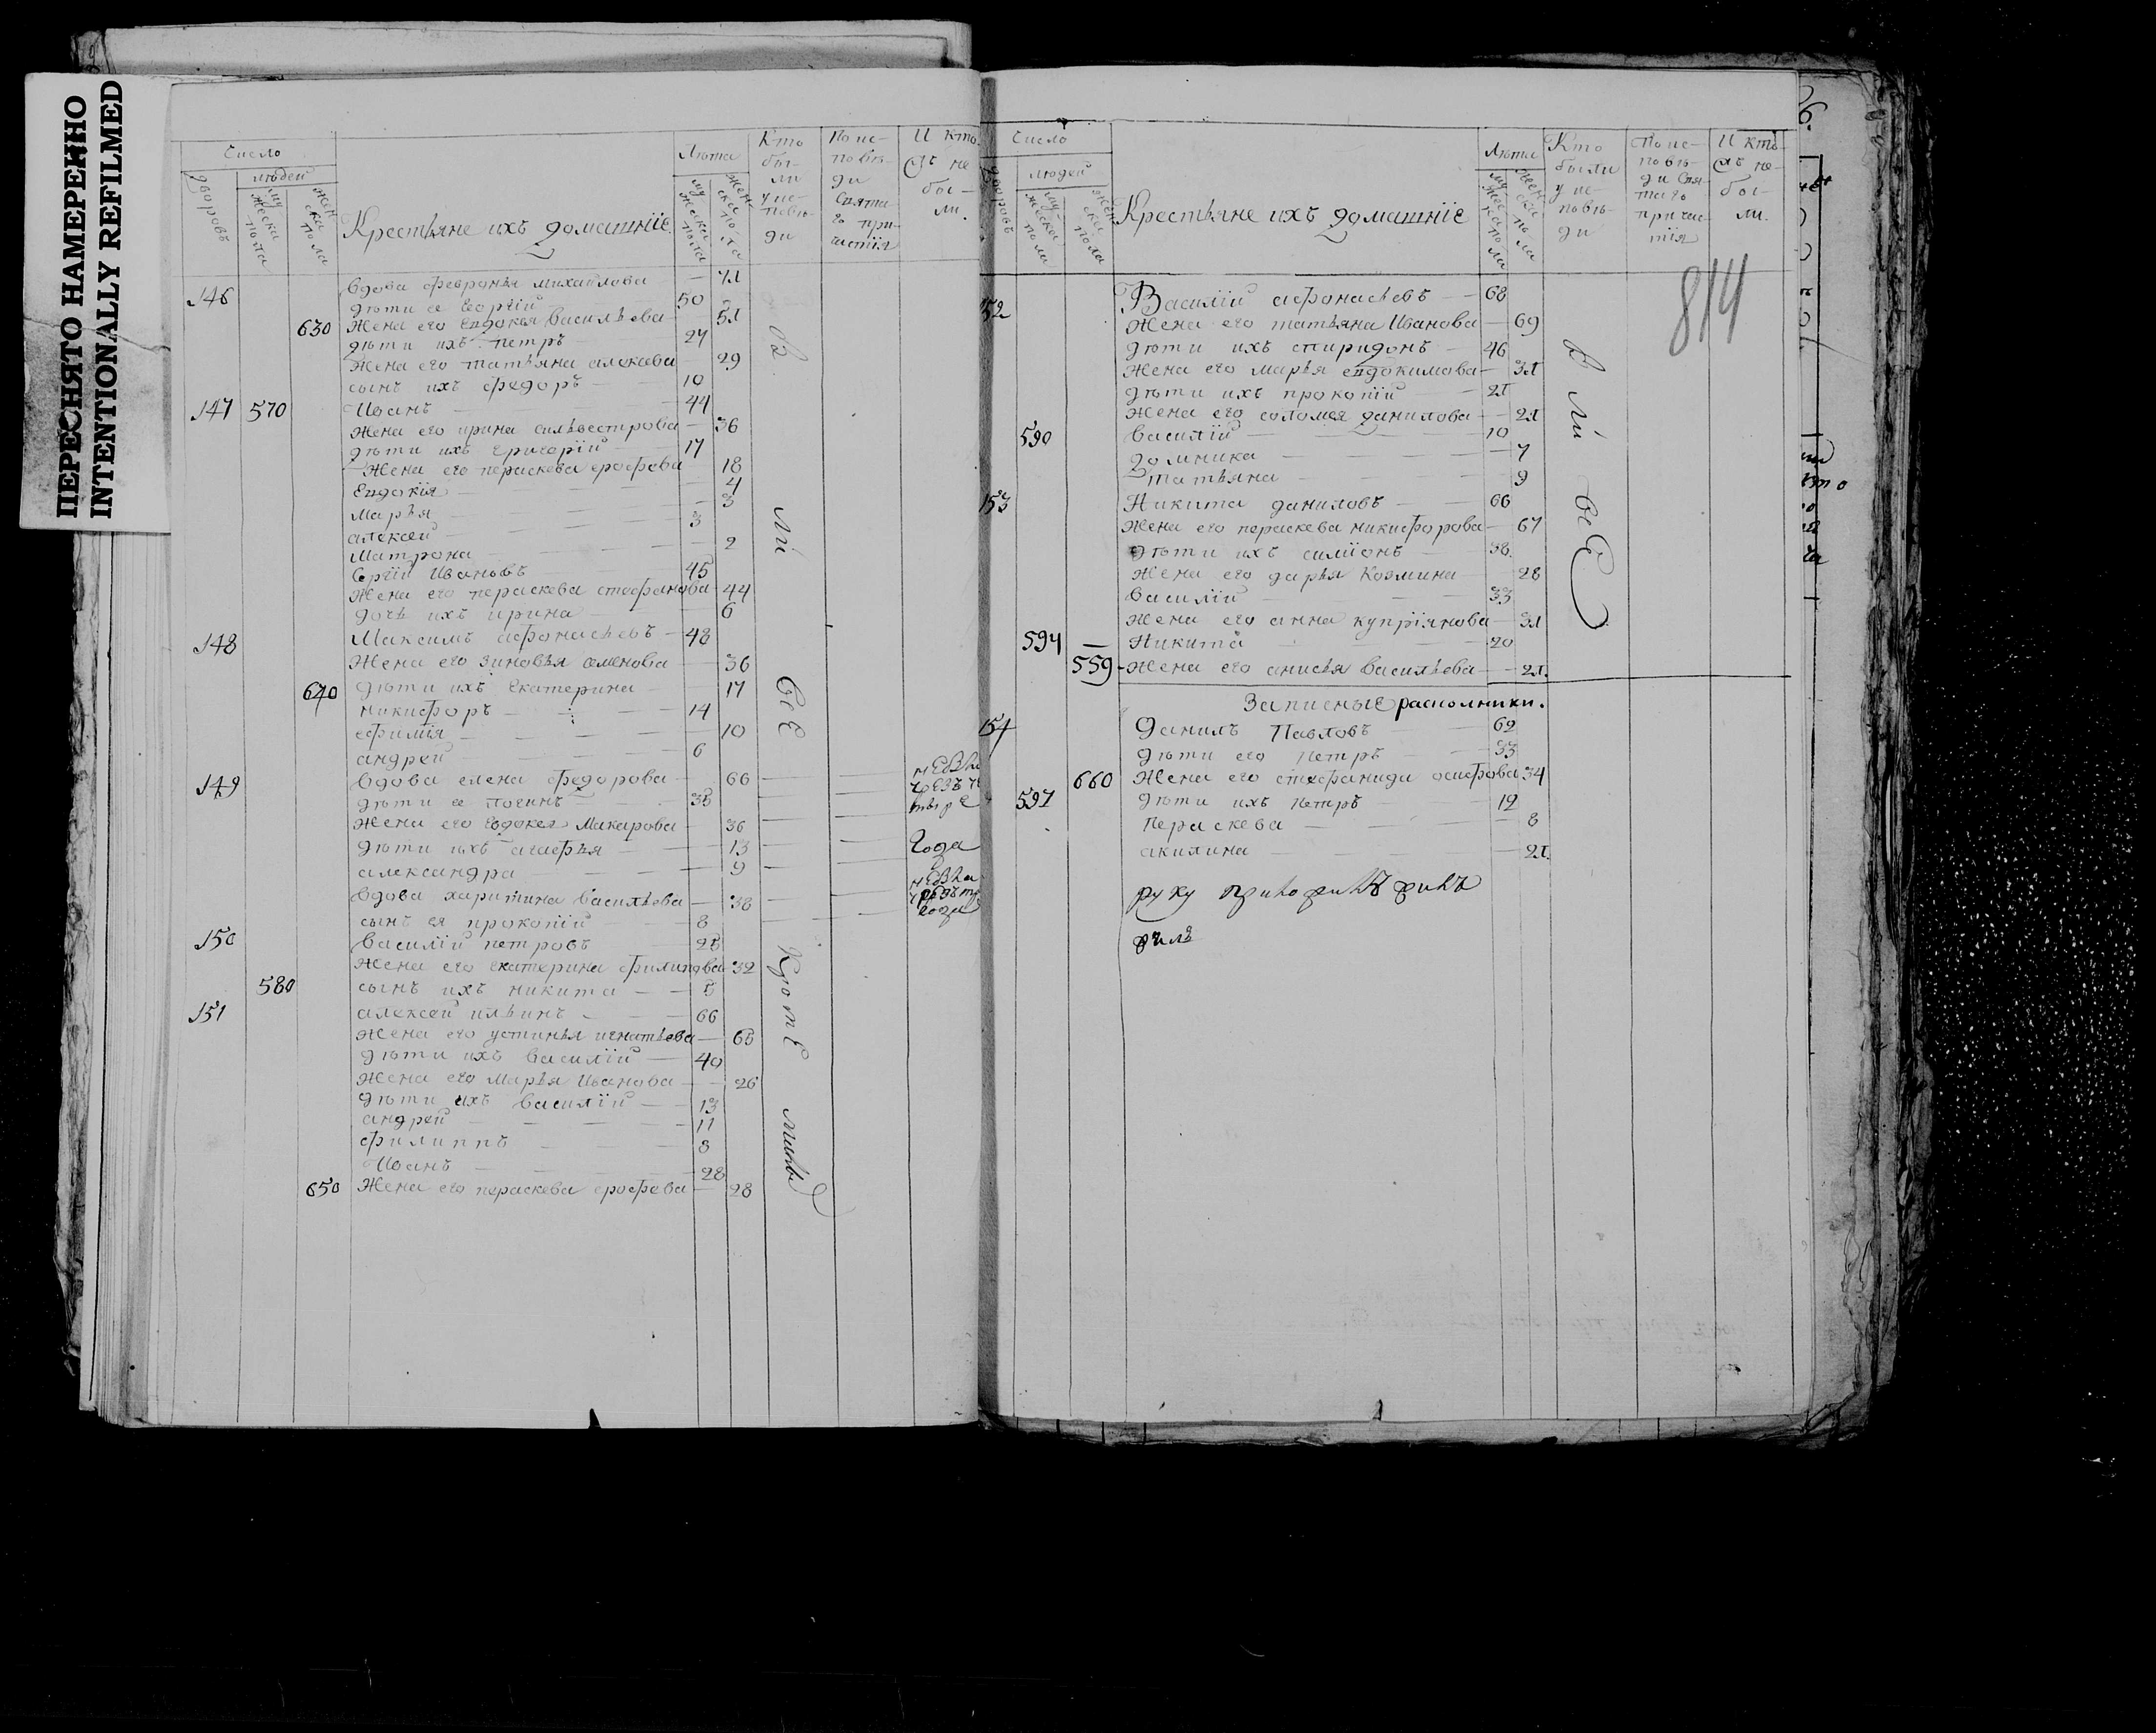 ПЕРЕСНЯТО НАМЕРЕННО
INTENTIONALLY REFILMED
Число
Лѣта
Кто были у исповѣди
По исповѣди Святаго причастїя
И кто ихъ не были.
дворовъ
людей
мужеска пола
женска пола
Крестьяне ихъ домашнїе
мужеска пола
женска пола
146 вдова февронья михайлова — 71
дѣти ее Георгїй 50
630 Жена его Евдокея Васильева — 51
дѣти ихъ петръ 27
Жена его татьяна алексева 29
сынъ ихъ федоръ 10
147 570 Иванъ 44
Жена его ирина сильвестрова 36
дѣти ихъ Григорїй 17
Жена его параскева ерофева 18
Евдокїя 4
Марья 3
алексей 3
Матрона 2
Сергїй Ивановъ 45
Жена его параскева стефанова 44
дочь ихъ ирина 6
148 Максимъ афонасьевъ 48
Жена его Зиновья семенова 36
640 дѣти ихъ Екатерина 17
никифоръ 14
ефимїя 10
андрей 6
149 вдова елена федорова 66
дѣти ее логинъ 38
Жена его Евдокея Макарова 36
дѣти ихъ агафья 13
года
александра 9
вдова харитина Васильева 38
года
сынъ ея прокопїй 8
150 Василїй петровъ 28
Жена его екатерина филипова 32
580 сынъ ихъ никита 5
151 алексей ильинъ 66
Жена его устинья игнатьева 65
дѣти ихъ Василїй 40
Жена его Марья Иванова 26
дѣти ихъ Василїй 13
андрей 11
филиппъ 8
Иванъ 28
650 Жена его параскева ерофева 28
Были всѣ
Кромѣ
Число
Лѣта
Кто были у исповѣди
По исповѣди Святаго причастїя
И кто ихъ не были.
дворовъ
людей
мужеска пола
женска пола
Крестьяне ихъ домашнїе
814
152 Василїй афонасьевъ 68
Жена его татьяна Иванова 69
дѣти ихъ спиридонъ 46
Жена его марья евдокимова 31
дѣти ихъ прокопїй 21
Жена его соломея данилова 21
590 Василїй 10
домника 7
татьяна 9
153 Никита даниловъ 66
Жена его параскева никифорова 67
дѣти ихъ симїонъ 38
Жена его дарья Козмина 28
Василїй 33
Жена его анна купрїянова 31
594 Никита 20
559 Жена его анисья Васильева 21.
Были всѣ
Записные раскольники.
154 Данилъ Павловъ 62
дѣти его петръ 33
660 Жена его стефанида осифова 34
597 дѣти ихъ петръ 12
параскева 8
акилина 21.
руку